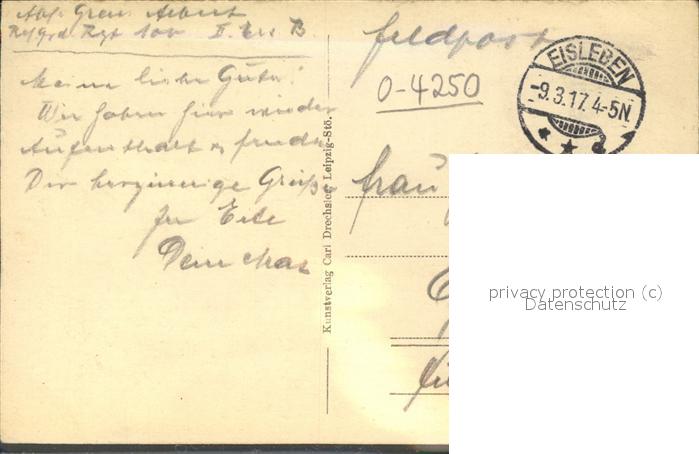 Abs. Gren. Arbeit
Res Grd. Rgt 100 II. Ers B.
Meine liebe Gute!
Wir haben hier wieder
Aufenthalt &
Dir herzinnige Grüße
In Eile
Dein Max
Kunstverlag Carl Drechsler, Leipzig-Stö.
Feldpost
0-4250
EISLEBEN
-9.3.17.4-5N.
* * a
Frau
privacy protection (c)
Datenschutz